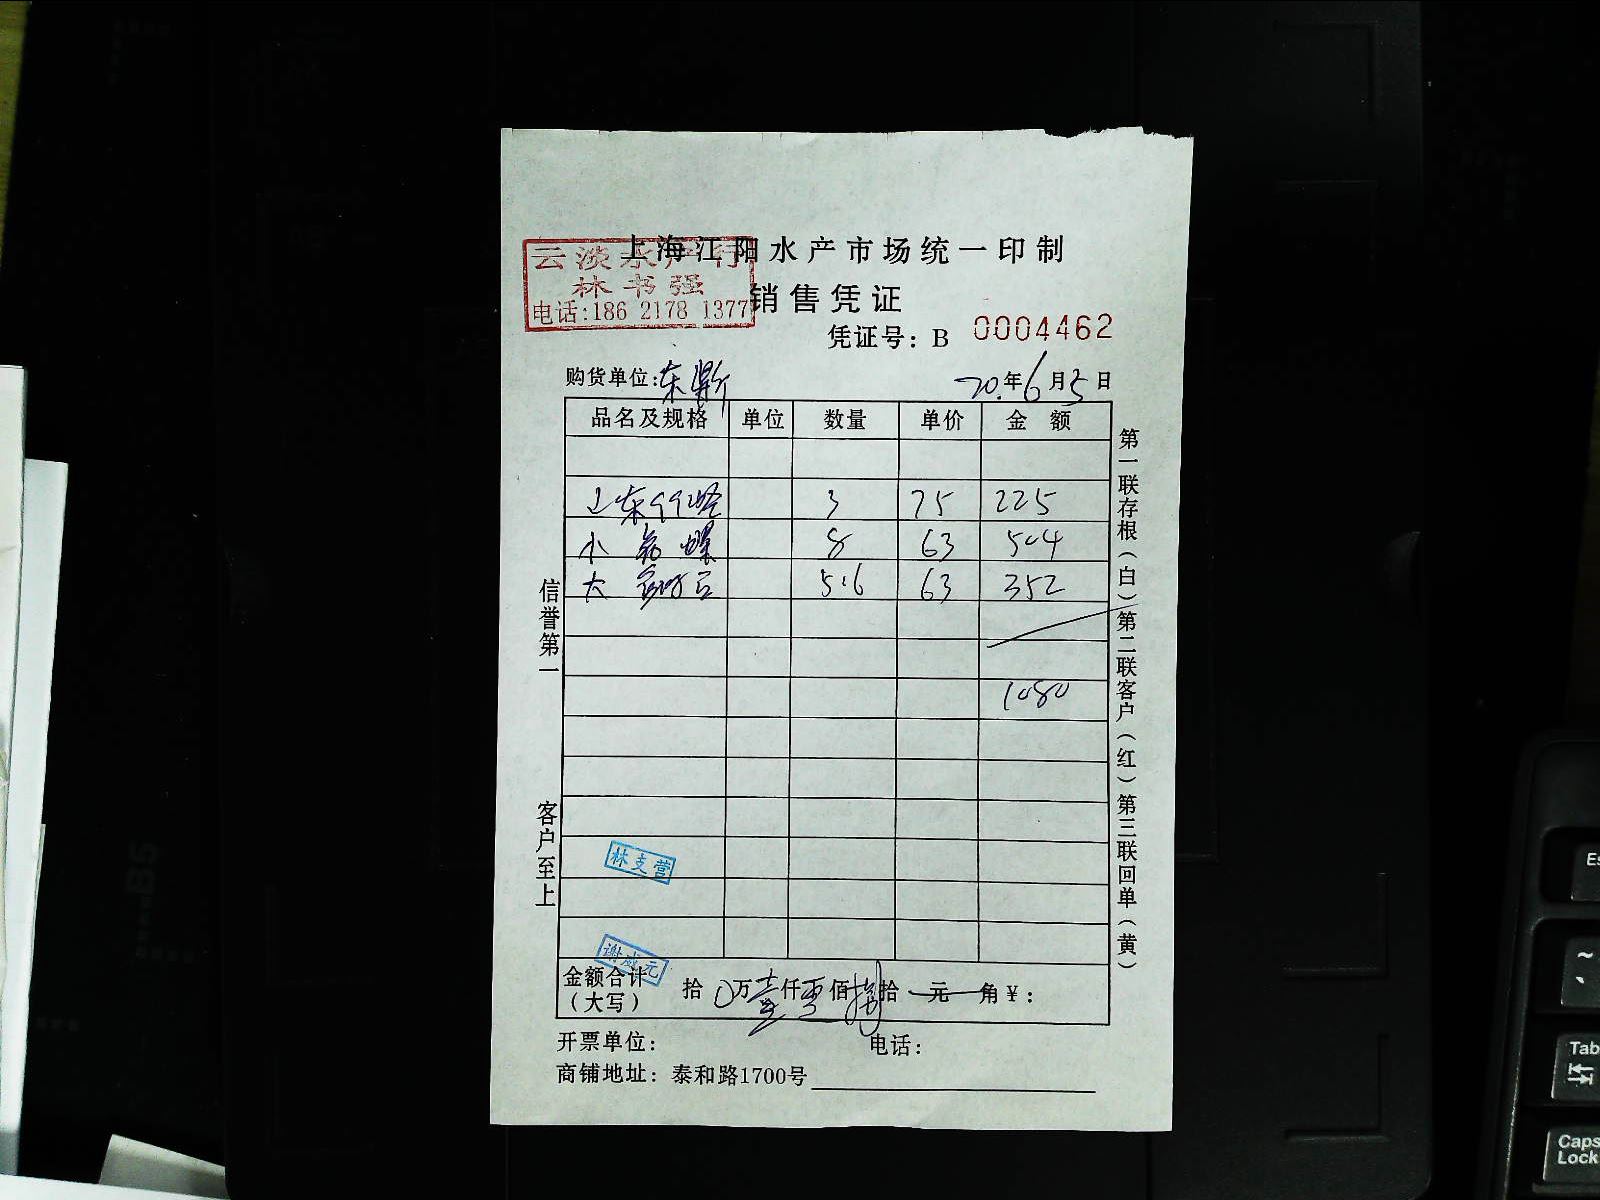 上海江阳水产市场统一印制
云淡水产行
林书强
电话:186 2178 1377
销售凭证
凭证号: B 0004462
购货单位:东
20.年6月5日
品名及规格 单位 数量 单价 金额
3 75 225
小 8 63 504
大 5.6 63 352
1080
信誉第一
客户至上
第一联存根(白)第二联客户(红)第三联回单(黄)
林支营
谢成元
金额合计(大写) 拾 0万壹仟零佰捌拾 元 角¥:
开票单位: 电话:
商铺地址: 泰和路1700号
B5
Es
~
Tab
Caps Lock